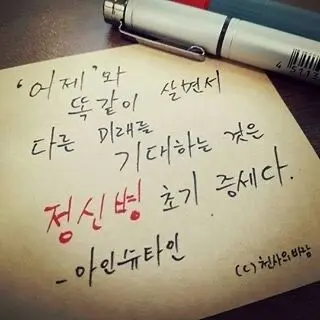 '어제'와
똑같이 살면서
다른 미래를
기대하는 것은
정신병 초기 증세다.
-아인슈타인
(c) 천사의바람
4 5113